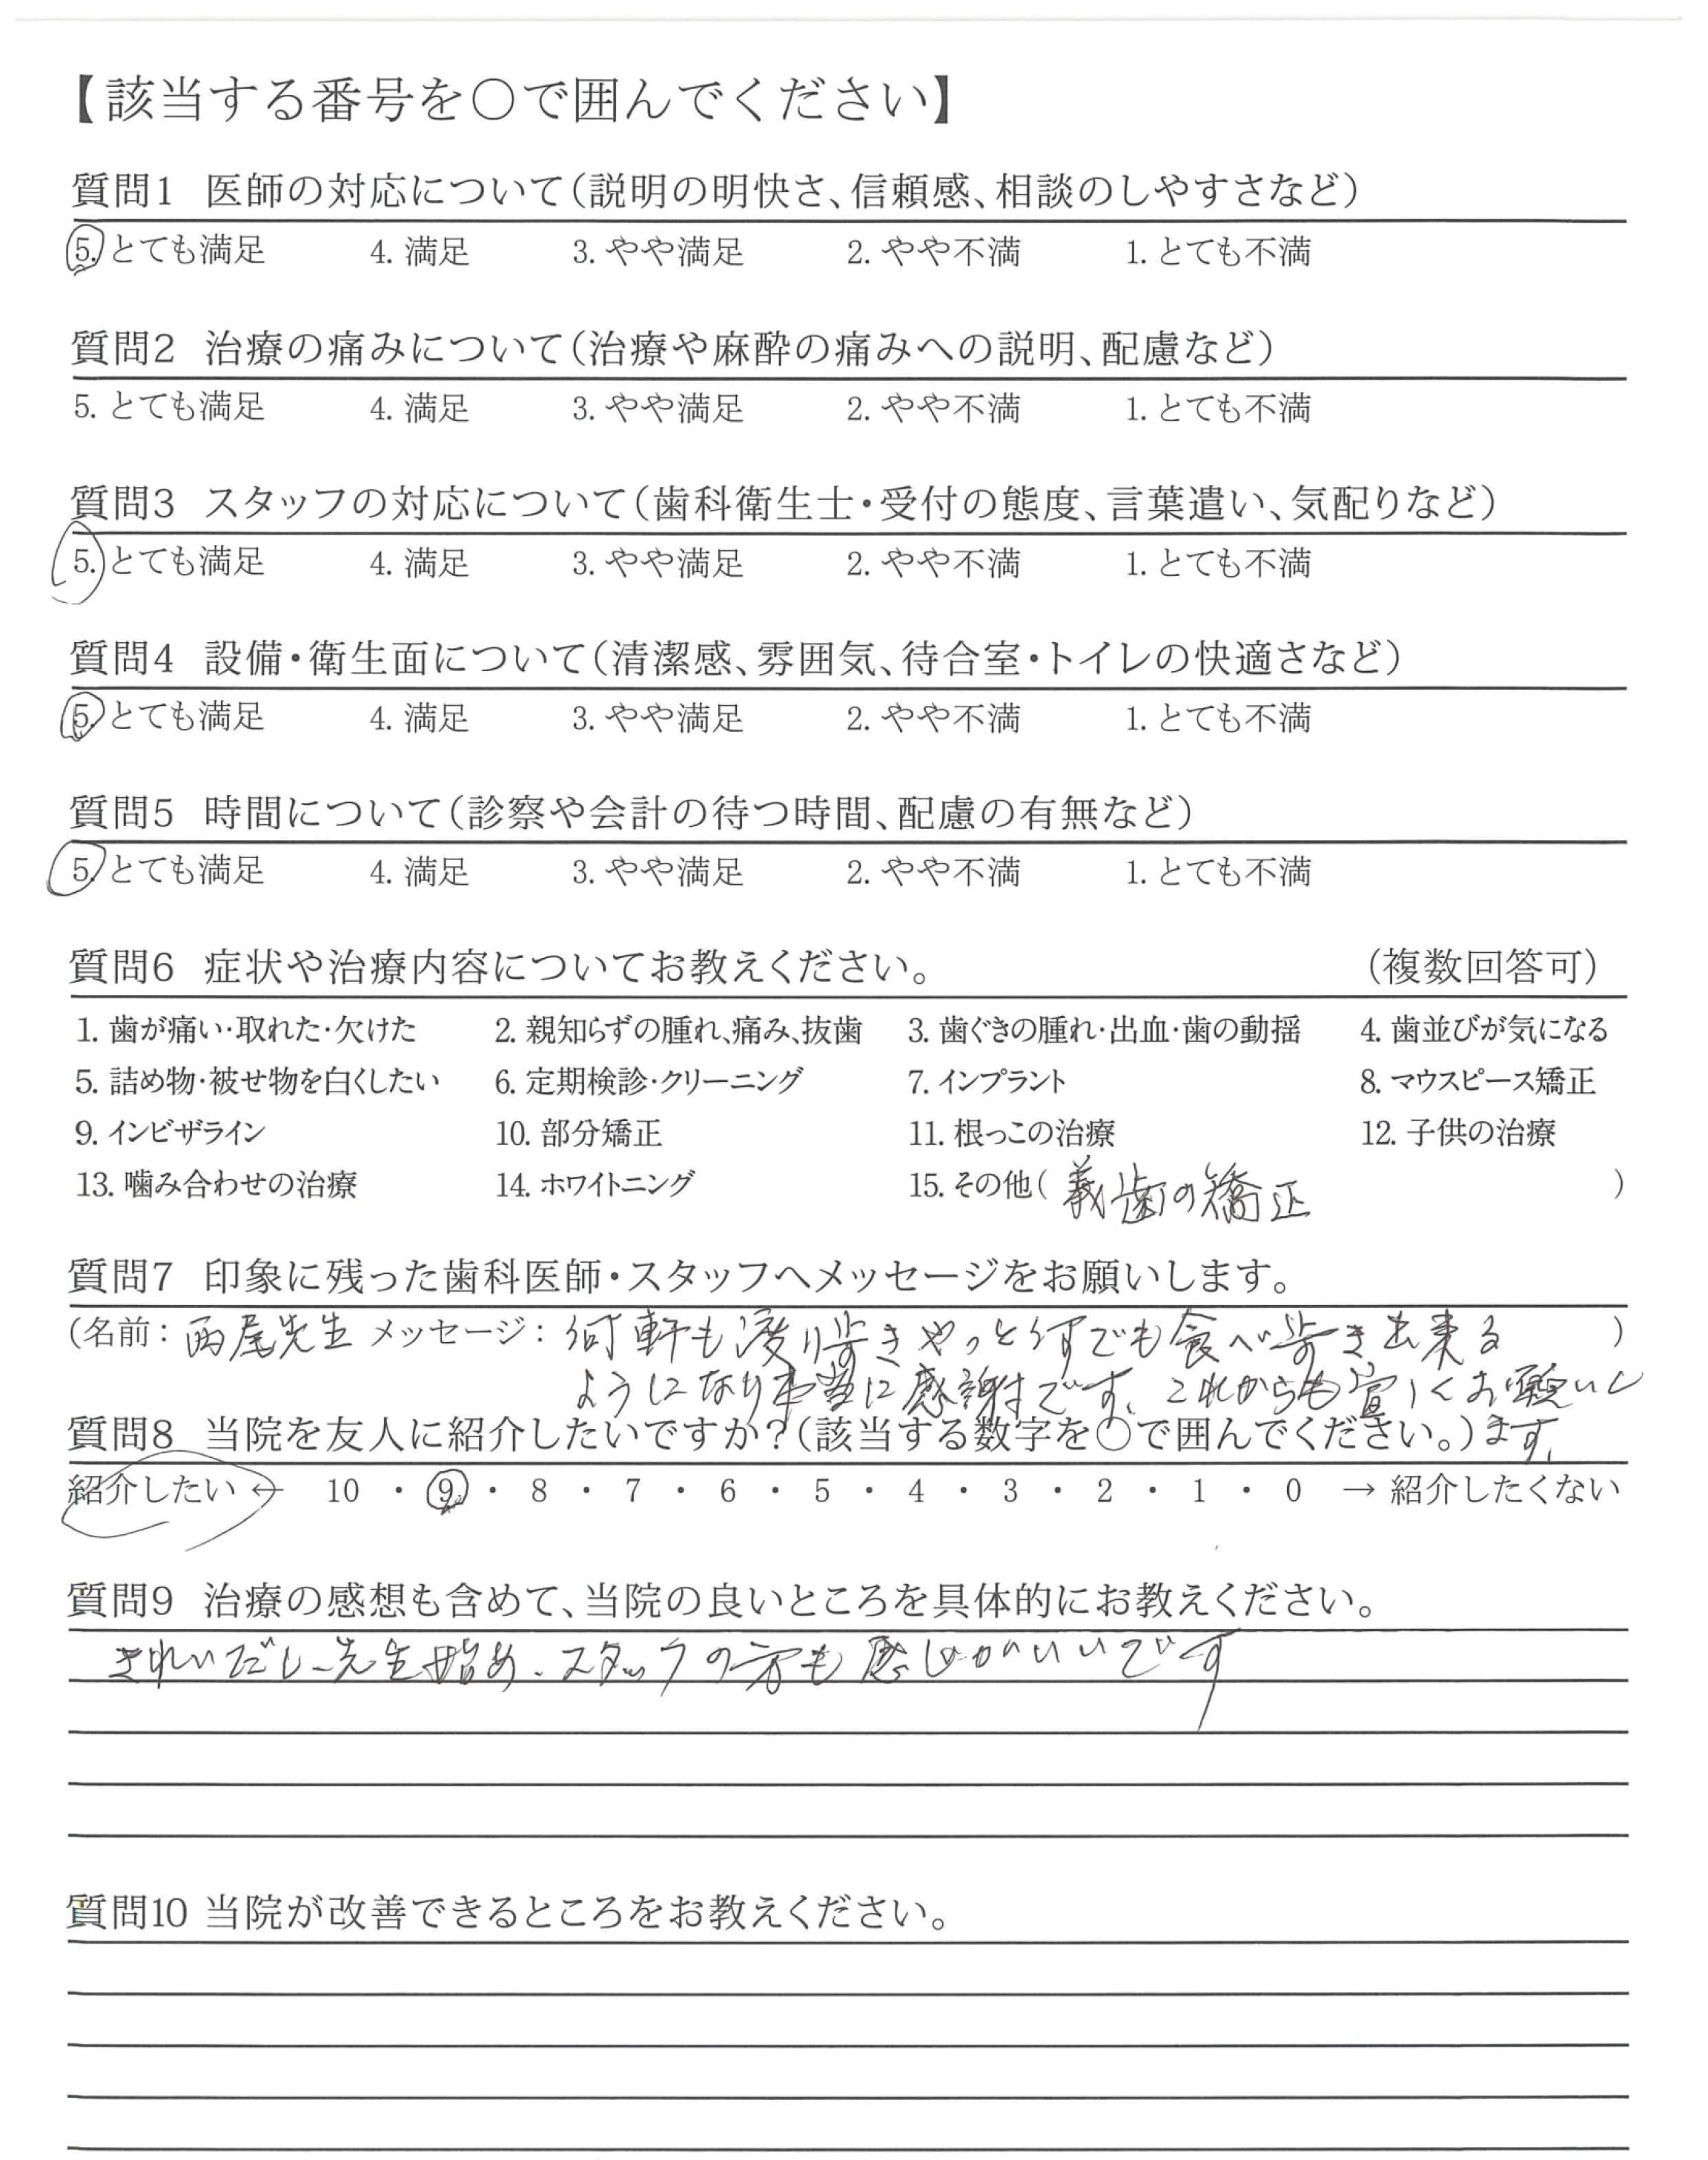 【該当する番号を○で囲んでください】
質問1 医師の対応について(説明の明快さ、信頼感、相談のしやすさなど)
5. とても満足 4. 満足 3. やや満足 2. やや不満 1. とても不満
質問2 治療の痛みについて(治療や麻酔の痛みへの説明、配慮など)
5. とても満足 4. 満足 3. やや満足 2. やや不満 1. とても不満
質問3 スタッフの対応について(歯科衛生士・受付の態度、言葉遣い、気配りなど)
5. とても満足 4. 満足 3. やや満足 2. やや不満 1. とても不満
質問4 設備・衛生面について(清潔感、雰囲気、待合室・トイレの快適さなど)
5. とても満足 4. 満足 3. やや満足 2. やや不満 1. とても不満
質問5 時間について(診察や会計の待つ時間、配慮の有無など)
5. とても満足 4. 満足 3. やや満足 2. やや不満 1. とても不満
質問6 症状や治療内容についてお教えください。 (複数回答可)
1. 歯が痛い・取れた・欠けた 2. 親知らずの腫れ、痛み、抜歯 3. 歯ぐきの腫れ・出血・歯の動揺 4. 歯並びが気になる
5. 詰め物・被せ物を白くしたい 6. 定期検診・クリーニング 7. インプラント 8. マウスピース矯正
9. インビザライン 10. 部分矯正 11. 根っこの治療 12. 子供の治療
13. 噛み合わせの治療 14. ホワイトニング 15. その他( 義歯の矯正 )
質問7 印象に残った歯科医師・スタッフへメッセージをお願いします。
(名前: 西尾先生 メッセージ: 何軒も渡り歩きやっと何でも食べ歩き出来る )
ようになり本当に感謝です。これからも宜しくお願いし
質問8 当院を友人に紹介したいですか?(該当する数字を○で囲んでください。) ます。
紹介したい ← 10 ・ 9 ・ 8 ・ 7 ・ 6 ・ 5 ・ 4 ・ 3 ・ 2 ・ 1 ・ 0 → 紹介したくない
質問9 治療の感想も含めて、当院の良いところを具体的にお教えください。
きれいだし、先生始め、スタッフの方も感じがいいです
質問10 当院が改善できるところをお教えください。